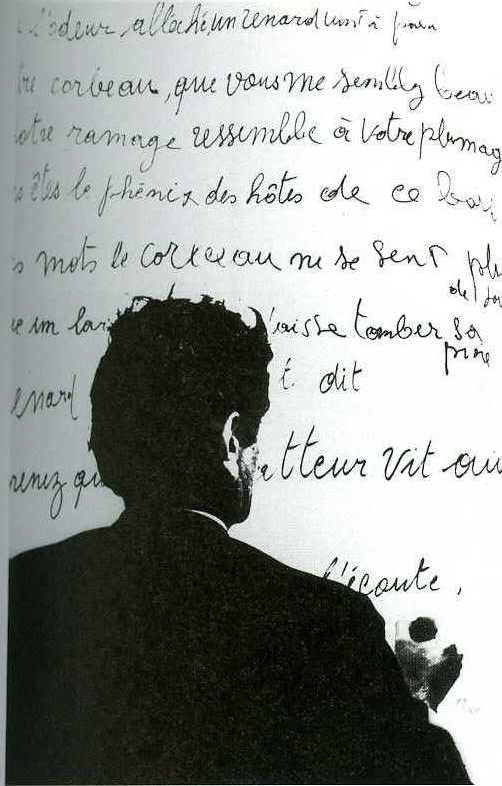 l'odeur allèché, un renard vint à
corbeau, que vous me semblez beau
votre ramage ressemble à votre plumag
êtes le phénix des hôtes de ce boi
mots le corbeau ne se sent plu
de
un lar laisse tomber sa
proie
enard t dit
renez qu atteur vit aux
l'écoute,